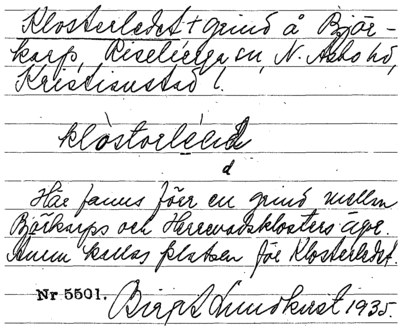 Klosterledet + grind å Björ-
karp, Riseberga sn, N. Åsbo hd,
Kristianstad l.
klòstorlèd
d
Här fanns förr en grind mellan
Björkarps och Herrevadsklosters ägor.
Ännu kallas platsen för Klosterledet.
Nr 5501. Birgit Lundkvist 1935.